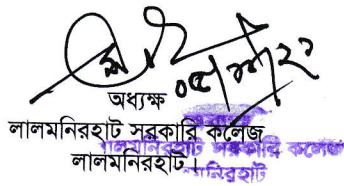 ০৫/১১/২১
অধ্যক্ষ
লালমনিরহাট সরকারি কলেজ
লালমনিরহাট।
লালমনিরহাট সরকারি কলেজ
লালমনিরহাট